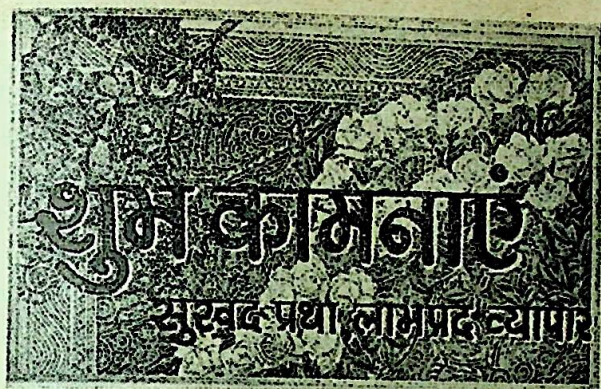 शुभ कामनाएँ
सुखद प्रथा लाभप्रद व्यापार